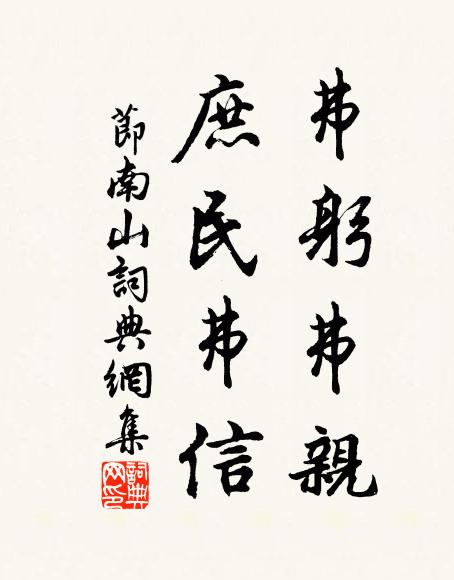 弗躬弗親
庶民弗信
節南山詞典網集
詞典网印